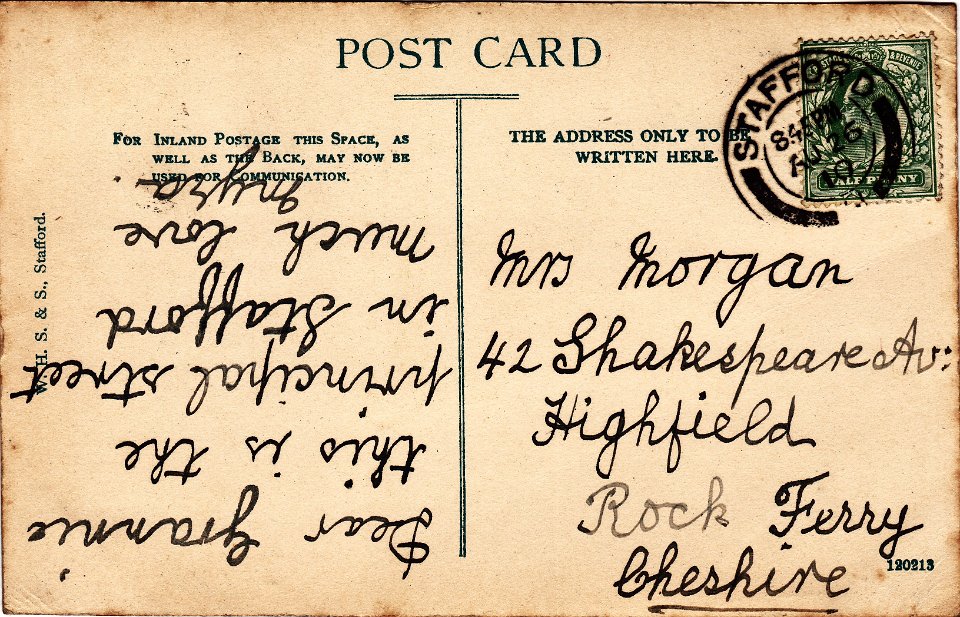 POST CARD
FOR INLAND POSTAGE THIS SPACE, AS
WELL AS THE BACK, MAY NOW BE
USED FOR COMMUNICATION.
THE ADDRESS ONLY TO BE
WRITTEN HERE.
STAFFORD
8 45 PM
AU 26
POSTAGE & REVENUE
HALF PENNY
W. H. S. & S., Stafford.
Dear Grannie
this is the
principal street
in Stafford
much love
Myra.
Mrs Morgan
42 Shakespeare Av:
Highfield
Rock Ferry
Cheshire
120213